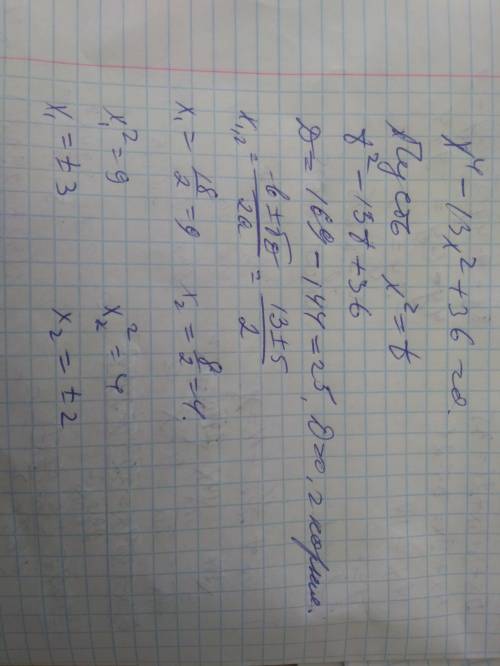 x⁴ - 13x² + 36 = 0.
Пусть x² = t
t² - 13t + 36
D = 169 - 144 = 25, D>0, 2 корня.
x₁,₂ = -b±√D / 2a = 13±5 / 2
x₁ = 18/2 = 9 x₂ = 8/2 = 4.
x₁² = 9 x₂² = 4
x₁ = ±3 x₂ = ±2